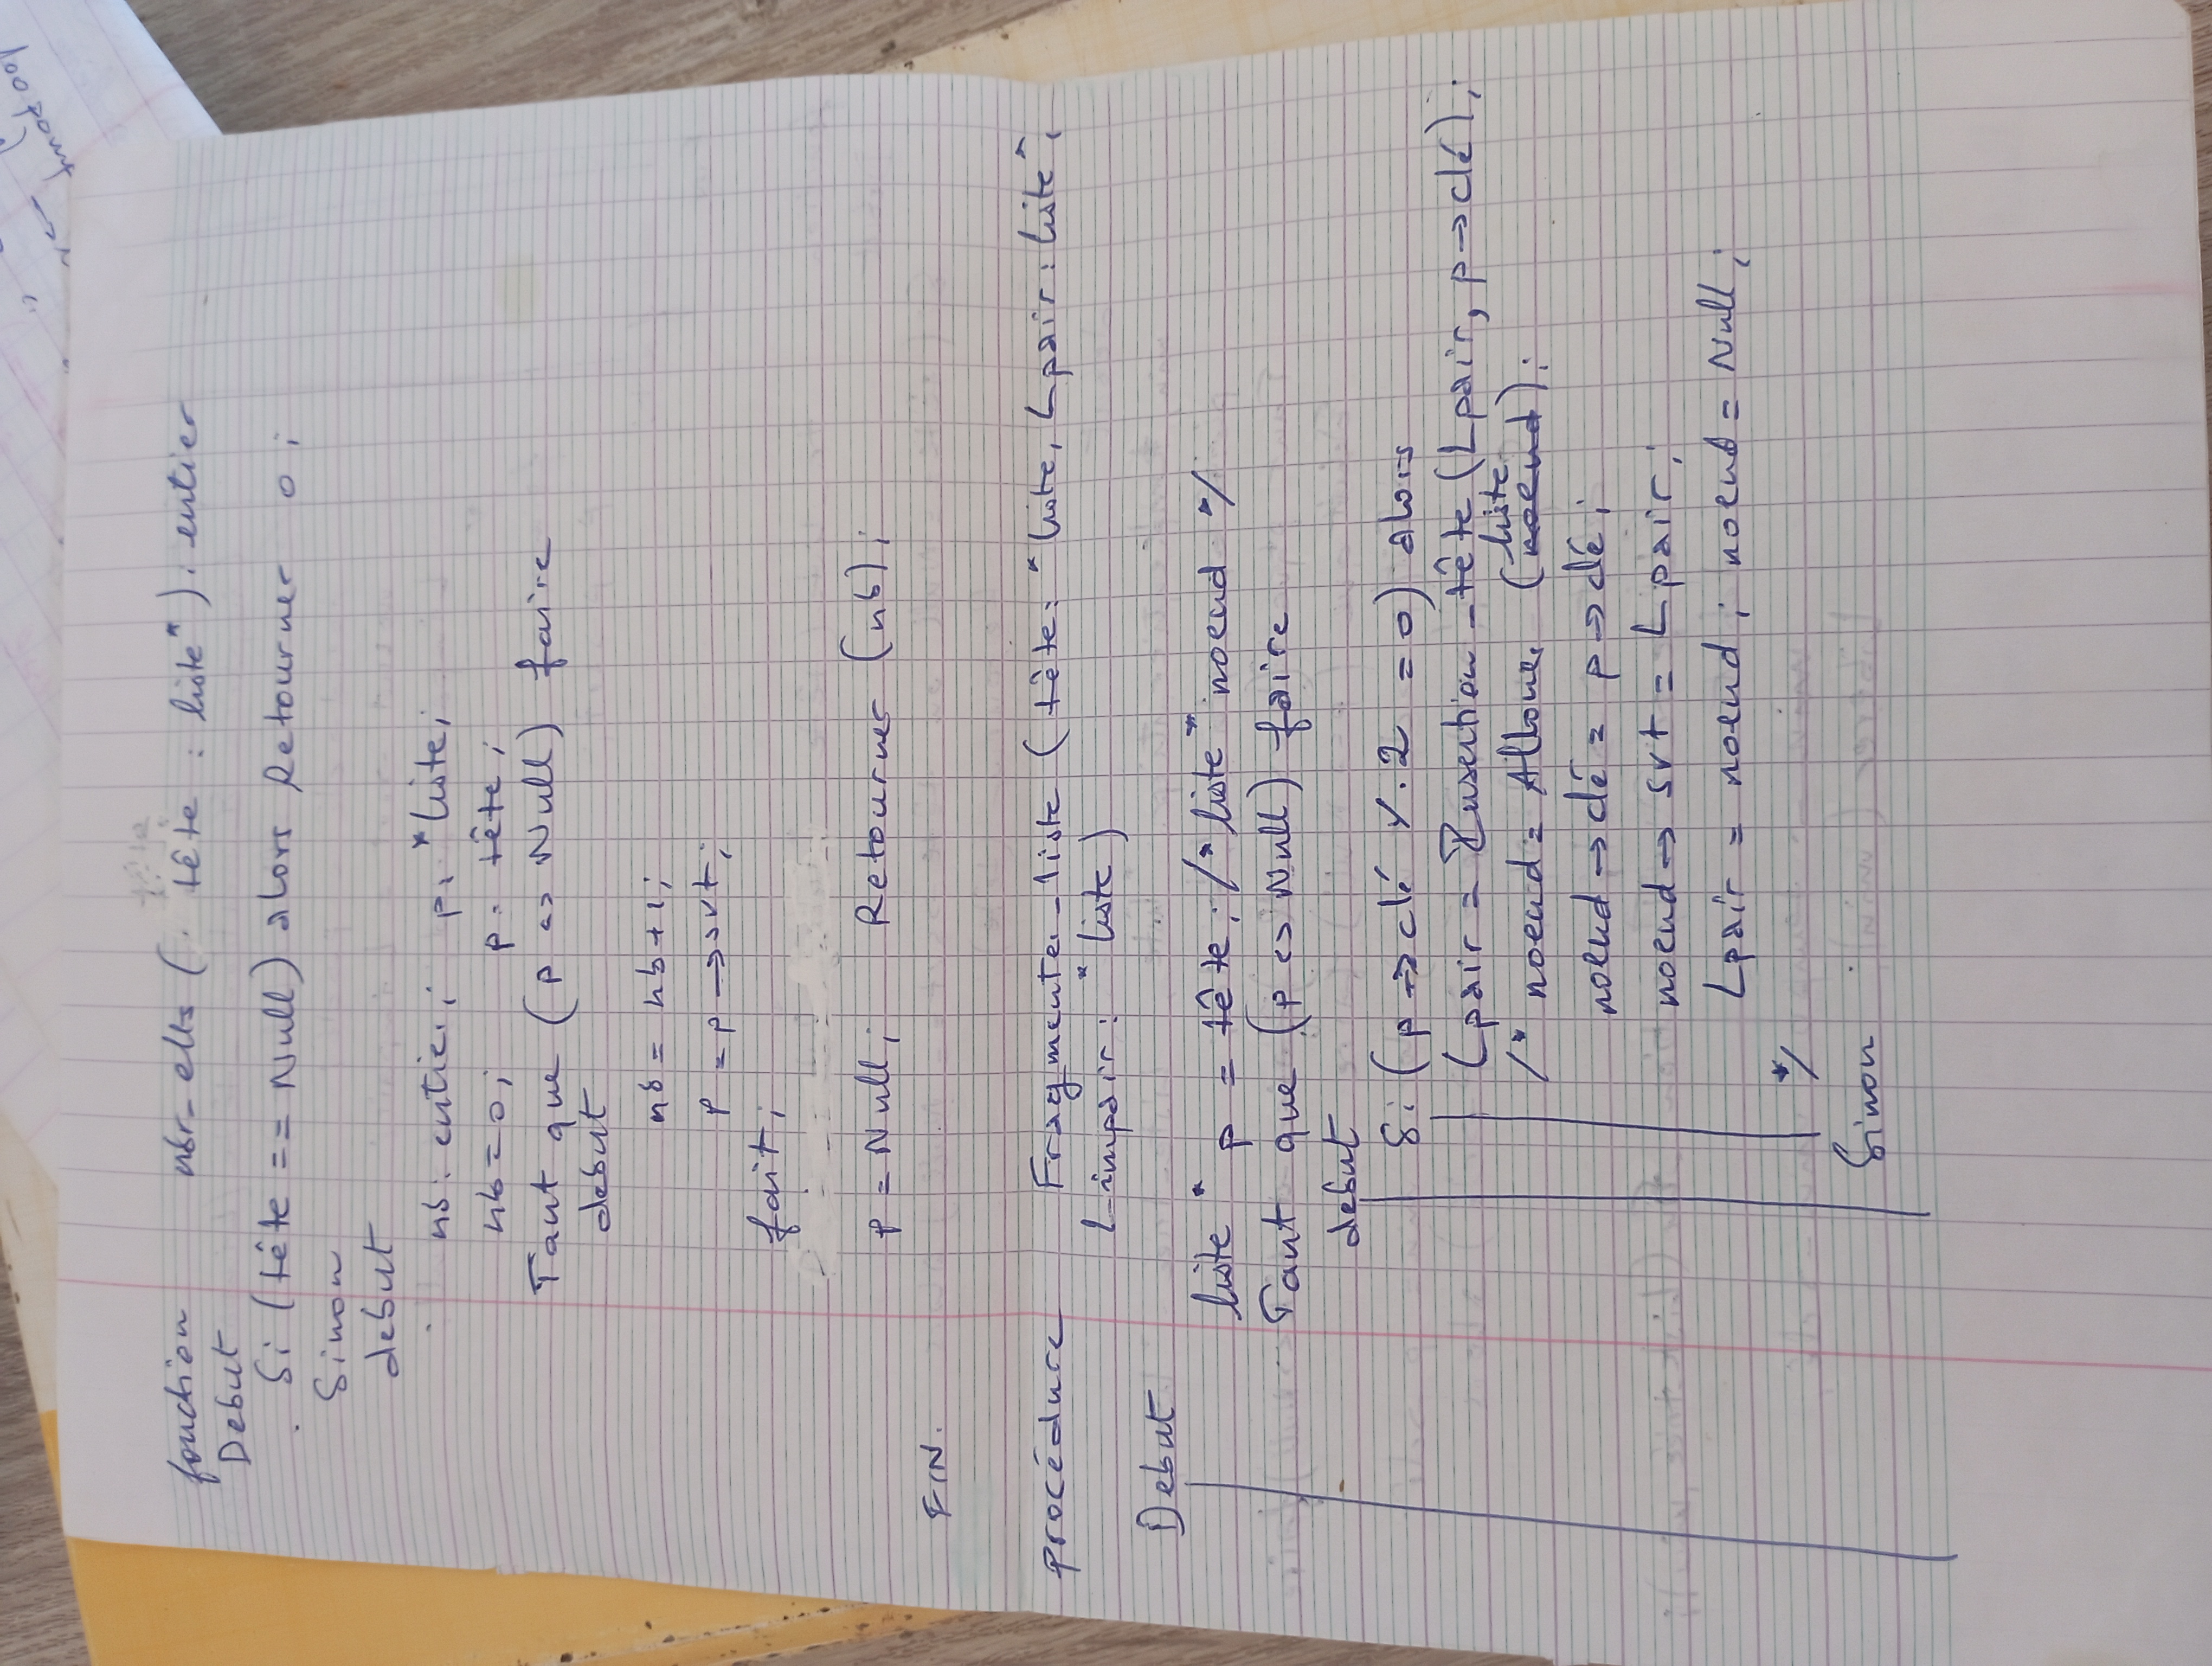 fonction nbr_elts (tête : liste*) : entier
Debut
Si (tête == Null) alors Retourner 0;
Sinon
debut
nb: entier; p: *liste;
nb = 0; p = tête;
Tant que (p <> Null) faire
debut
nb = nb + 1;
p = p → svt;
fait;
p = Null; Retourner (nb);
FIN.
procédure Fragmenter_liste (tête: *liste, Lpair: liste*,
L-impair: *liste)
Debut
liste * p = tête; /* liste * noeud */
Tant que (p <> Null) faire
debut
Si (p → clé % 2 = 0) alors
Lpair = Insertion_tête (Lpair, p → clé);
/* noeud = Allouer (noeud liste);
noeud → clé = p → clé;
noeud → svt = Lpair;
Lpair = noeud; noeud = Null;
*/
Sinon